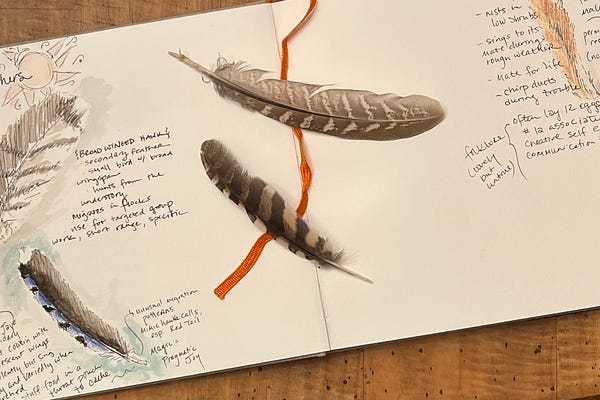 {BROAD WINGED HAWK}
- secondary feather
- small bird w/ broad
wingspan
- hunts from the
understory
- Migrates in flocks
use for targeted group
work, short range, specific
- unusual migration
patterns
- Mimic hawk calls,
esp Red Tail
Magic =
Pragmatic
Joy
Jay
wings
and variedly when
stuff food in a
throat pouch
to cache
- nests in
low shrubs
- sings to its
mate during
rough weather
- Mate for life
- chirp duets
during trouble
Folklore
(lovely
but
untrue)
often lay 12 eggs
#12 associated
creative self e
communication